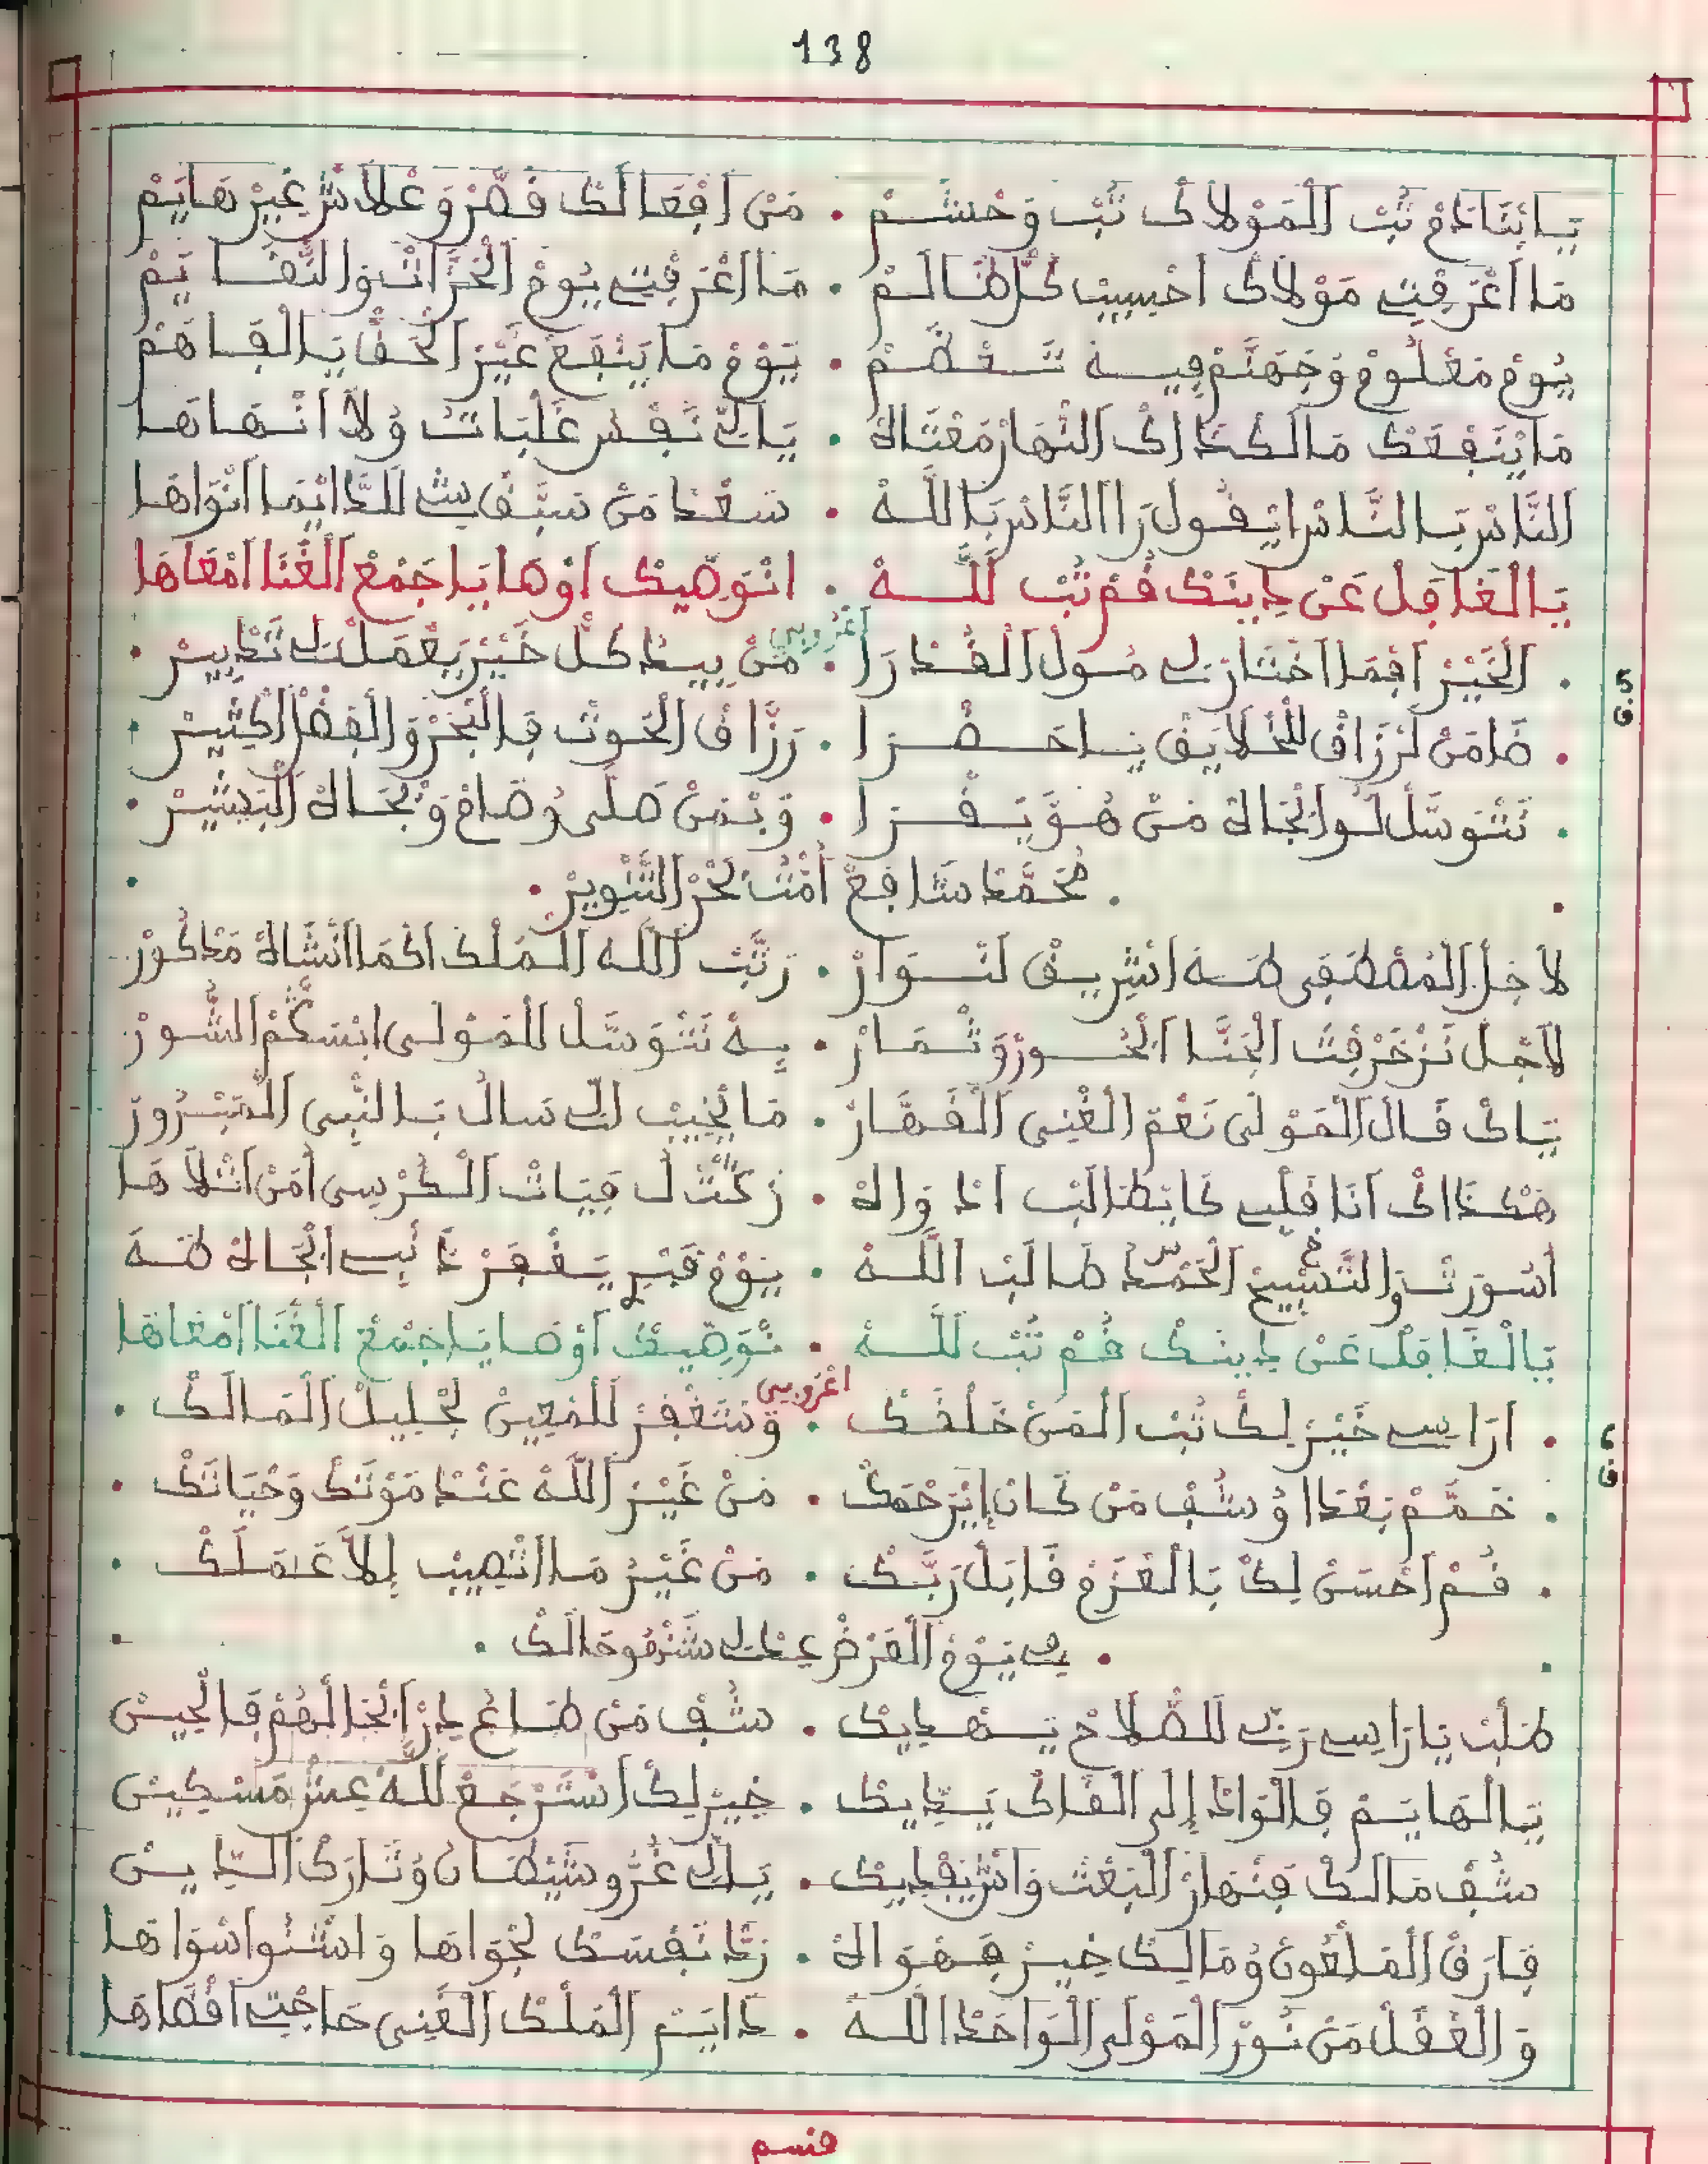 138
يَا بْنَادَمْ تُبْ الْمَوْلَاكْ تُبْ وَحْشَمْ . مَنْ اَفْعَالَكْ قَصَّرْ وَعْلَاشْ غِيرْ هَايَمْ
مَا اعْرَفْتِ مَوْلَاكْ احْسِيبْ كُلْ ظَالَمْ . مَا اعْرَفْتِ يُومْ الْحَرّ انْتْ وَالنَّقَايَمْ
يُومْ مَعْلُومْ وَجَهَنَّمْ فِيهْ تَعْظَمْ . يَوْمْ مَا يَنْفَعْ غَيْرْ الْحَقّْ يَا الْفَاهَمْ
مَا يْنَفْعَكْ مَالَكْ دَاكْ النّْهَارْ مَعْتَاهْ . يَاكْ نَفْسْ غَلْبَاتْ وُلَا انْهَاهَا
النَّاسْ بَالنَّاسْ ايْقُولَ رَا النَّاسْ بَاللَّهْ . سَعْدَ مَنْ سَبَّقْ شِ للدَّايْمَا انْوَاهَا
يَا الْغَافِلْ عَنْ دِينَكْ قُمْ تُبْ لَلَّهْ . انْوَصِّيكْ اوْهَا يَا جَمْعْ الْغْنَا امْعَاهَا
اعْرُوبِي
5 ق
. الْخَيْرْ اَفِمَا اخْتَارْ لِي مُولْ الْقُدْرَا . مَنْ بِيدُ كُلْ خَيْرْ يَعْمَلْ لِي تَدْبِيرْ .
. ضَامَنْ لَرْزَاقْ للْخْلَايَقْ يَا حَضْرَا . رَزَّاقْ الْحُوتْ فِالْبَحْرْ وَالْفِضْلْ الْكْثِيرْ .
. نَتْوَسَّلْ لُو ابْجَاهْ مَنْ هُوَّ يَقْرَا . وَبْمَنْ صَلَّى وُصَامْ وَبْجَاهْ الْبَشِيرْ .
. مُحَمَّدْ شَافِعْ اُمْتُ بَحْرْ التَّنْوِيرْ .
لَاجْلْ الْمُصْطَفِى طَهَ اشْرِيقْ لَنْوَارْ . رَتَّبْ اللَّه الْمَلْكْ اكْمَا انْشَاهْ مَدْكُورْ
لَاجْلْ تَزْخَرْفِتْ الْجَنَّا الْحُورْ وَثْمَارْ . بِهْ نَتْوَسَّلْ لَلْمَوْلَى ابْسَكُّمْ السُّورْ
يَاكْ قَالَ الْمَوْلَى نَعْمَ الْغْنِي الْقَهَّارْ . مَا يْخِيبْ لِّي سَالْ بَالنّْبِي الْمَبْرُورْ
هَكْدَاكْ اَنَا قَلْبِ كَايْطَالَبْ ادْوَاهْ . زَكَّتْ لُ فِيَاتْ الْكُرْسِي اُمَنْ اتْلَاهَا
اُسُورْتْ وَالتَّسْبِيحْ الْحَمْدْ طَالَبْ اللَّهْ . يَوْمْ قَبْرِ يَقْفَرْ ذَنْبِ ابْجَاهْ طَهَ
يَا الْغَافِلْ عَنْ دِينَكْ قُمْ تُبْ لَلَّهْ . نْوَصِّيكْ اَوْهَا يَا جَمْعْ الْغْنَا امْعَاهَا
اعْرُوبِي
6 ق
. اَرَاسِي خَيْرْ لِكْ تُبْ الْمَنْ خَلْقَكْ . وَسْتَغْفِرْ لَلْمْعِينْ لَجْلِيلْ الْمَالَكْ .
. خَمَّمْ بَعْدَا وُشُفْ مَنْ كَانْ إيْرَحْمَكْ . مَنْ غَيْرْ اللَّهْ عَنْدْ مَوْتَكْ وَحْيَاتَكْ .
. قُمْ اَحْسَنْ لِكْ بَالْعَزْمْ قَابَلْ رَبَّكْ . مَنْ غَيْرُ مَا اتْصِيبْ إِلَّا عَمَلَكْ .
. فِي يَوْمْ الْعَرْضْ عِنْدْ لِي شَرْفُو حَالَكْ .
طْلَبْ يَا رَاسِي رَبِّي لَلصّْلَاحْ يَهْدِيكْ . شُفْ مَنْ ضَاعْ دِرْ ابْحَالْهُمْ فَالْحِينْ
يَا الْهَايَمْ فَالْوَادْ إِلَى الْقَاكْ يَدِّيكْ . خِيرْ لِكْ اسْتَرْجَعْ لَلَّهْ عِشْ مَسْكِينْ
شُفْ مَا لَكْ فِنْهَارْ الْبَعْثْ وَاشْ يَفْدِيكْ . يَاكْ غُرُّو شَيْطَانُ وُتَارَكْ الدِّينْ
فَارَقْ الْمَلْعُونْ وُمَا لِكْ خِيرْ فِهْوَاهْ . رَدّْ نَفْسَكْ لَجْوَاهَا وَاسْتُو اسْوَاهَا
وَالْعْقَلْ مَنْ نُورْ الْمَوْلَى الْوَاحَدْ اللَّهْ . دَايَمْ الْمَلْكْ الْغَنِي حَاجْتِ اقْضَاهَا
قسم